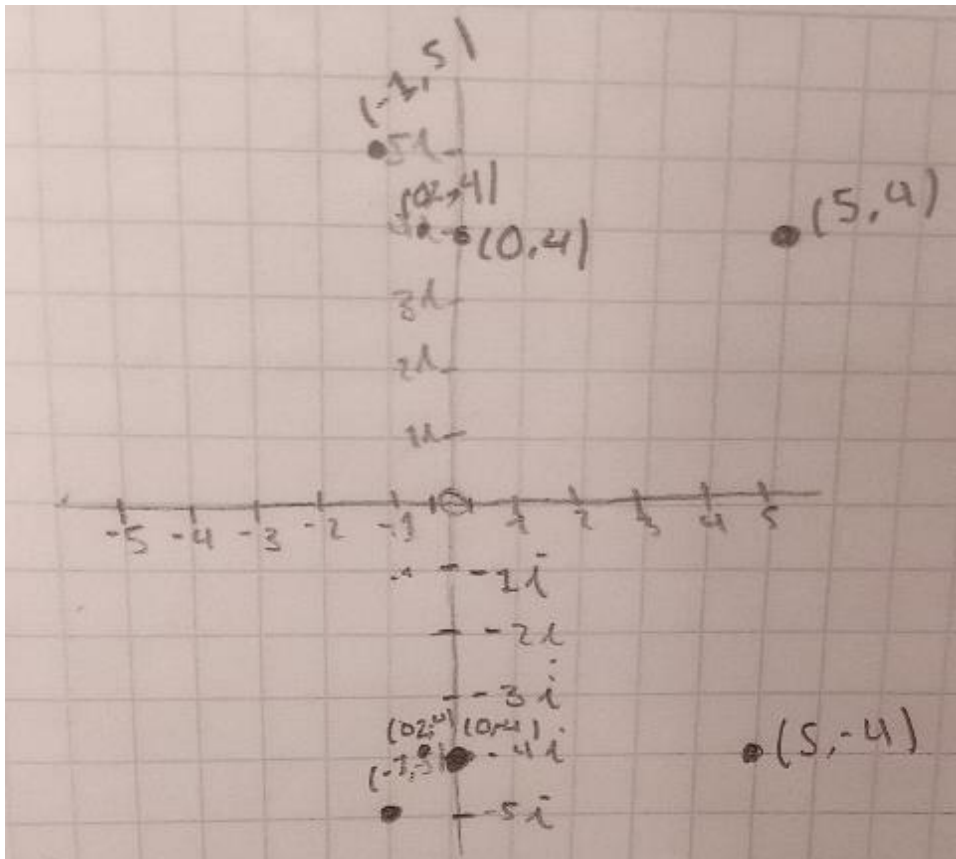 (-1,5)
5i
(02,4)
(0,4)
(5,4)
3i
2i
1i
-5 -4 -3 -2 -1 1 2 3 4 5
-1i
-2i
-3i
(0,-4)
-4i
(5,-4)
-5i